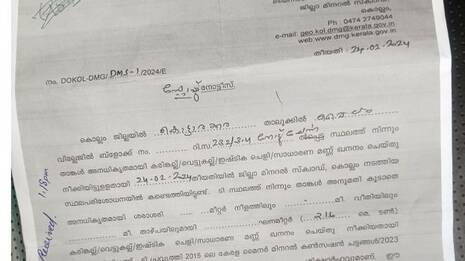 ജില്ലാ മിനറൽ സ്ക്വാഡ്
കൊല്ലം,
Ph : 0474 2749044
e-mail: geo.kol.dmg@kerala.gov.in
www.web:www.dmg.kerala.gov.in
തീയതി : 24-02-2024
no. DOKOL-DMG/DMS-1/2024/E
നോട്ടീസ്
കൊല്ലം ജില്ലയിൽ കൊട്ടാരക്കര താലൂക്കിൽ
വില്ലേജിൽ ബ്ളോക്ക് നം. റി.സ 232/3,4 സ്ഥലത്ത് നിന്നും
താങ്കൾ അനധികൃതമായി കരിങ്കല്ല്/വെട്ടുകല്ല്/ഇഷ്ടിക ചെളി/സാധാരണ മണ്ണ് ഖനനം ചെയ്തു
നീക്കിയിട്ടുളളതായി 24-02-2024 തീയതിയിൽ ജില്ലാ മിനറൽ സ്ക്വാഡ്, കൊല്ലം നടത്തിയ
സ്ഥലപരിശോധനയിൽ കണ്ടെത്തിയിട്ടുണ്ട്. ടി സ്ഥലത്ത് നിന്നും താങ്കൾ അനുമതി കൂടാതെ
അനധികൃതമായി ശരാശരി മീറ്റർ നീളത്തിലും മീ. വീതിയിലും
മീ. താഴ്ചയിലുമായി ഘനമീറ്റർ (216 മെ. ടൺ)
കരിങ്കല്ല്/വെട്ടുകല്ല്/ഇഷ്ടിക ചെളി/സാധാരണ മണ്ണ് ഖനനം ചെയ്തു നീക്കിയതായി
2015 ലെ കേരള മൈനർ മിനറൽ കൺസഷൻ ചട്ടങ്ങൾ/2023
Received
1.18pm